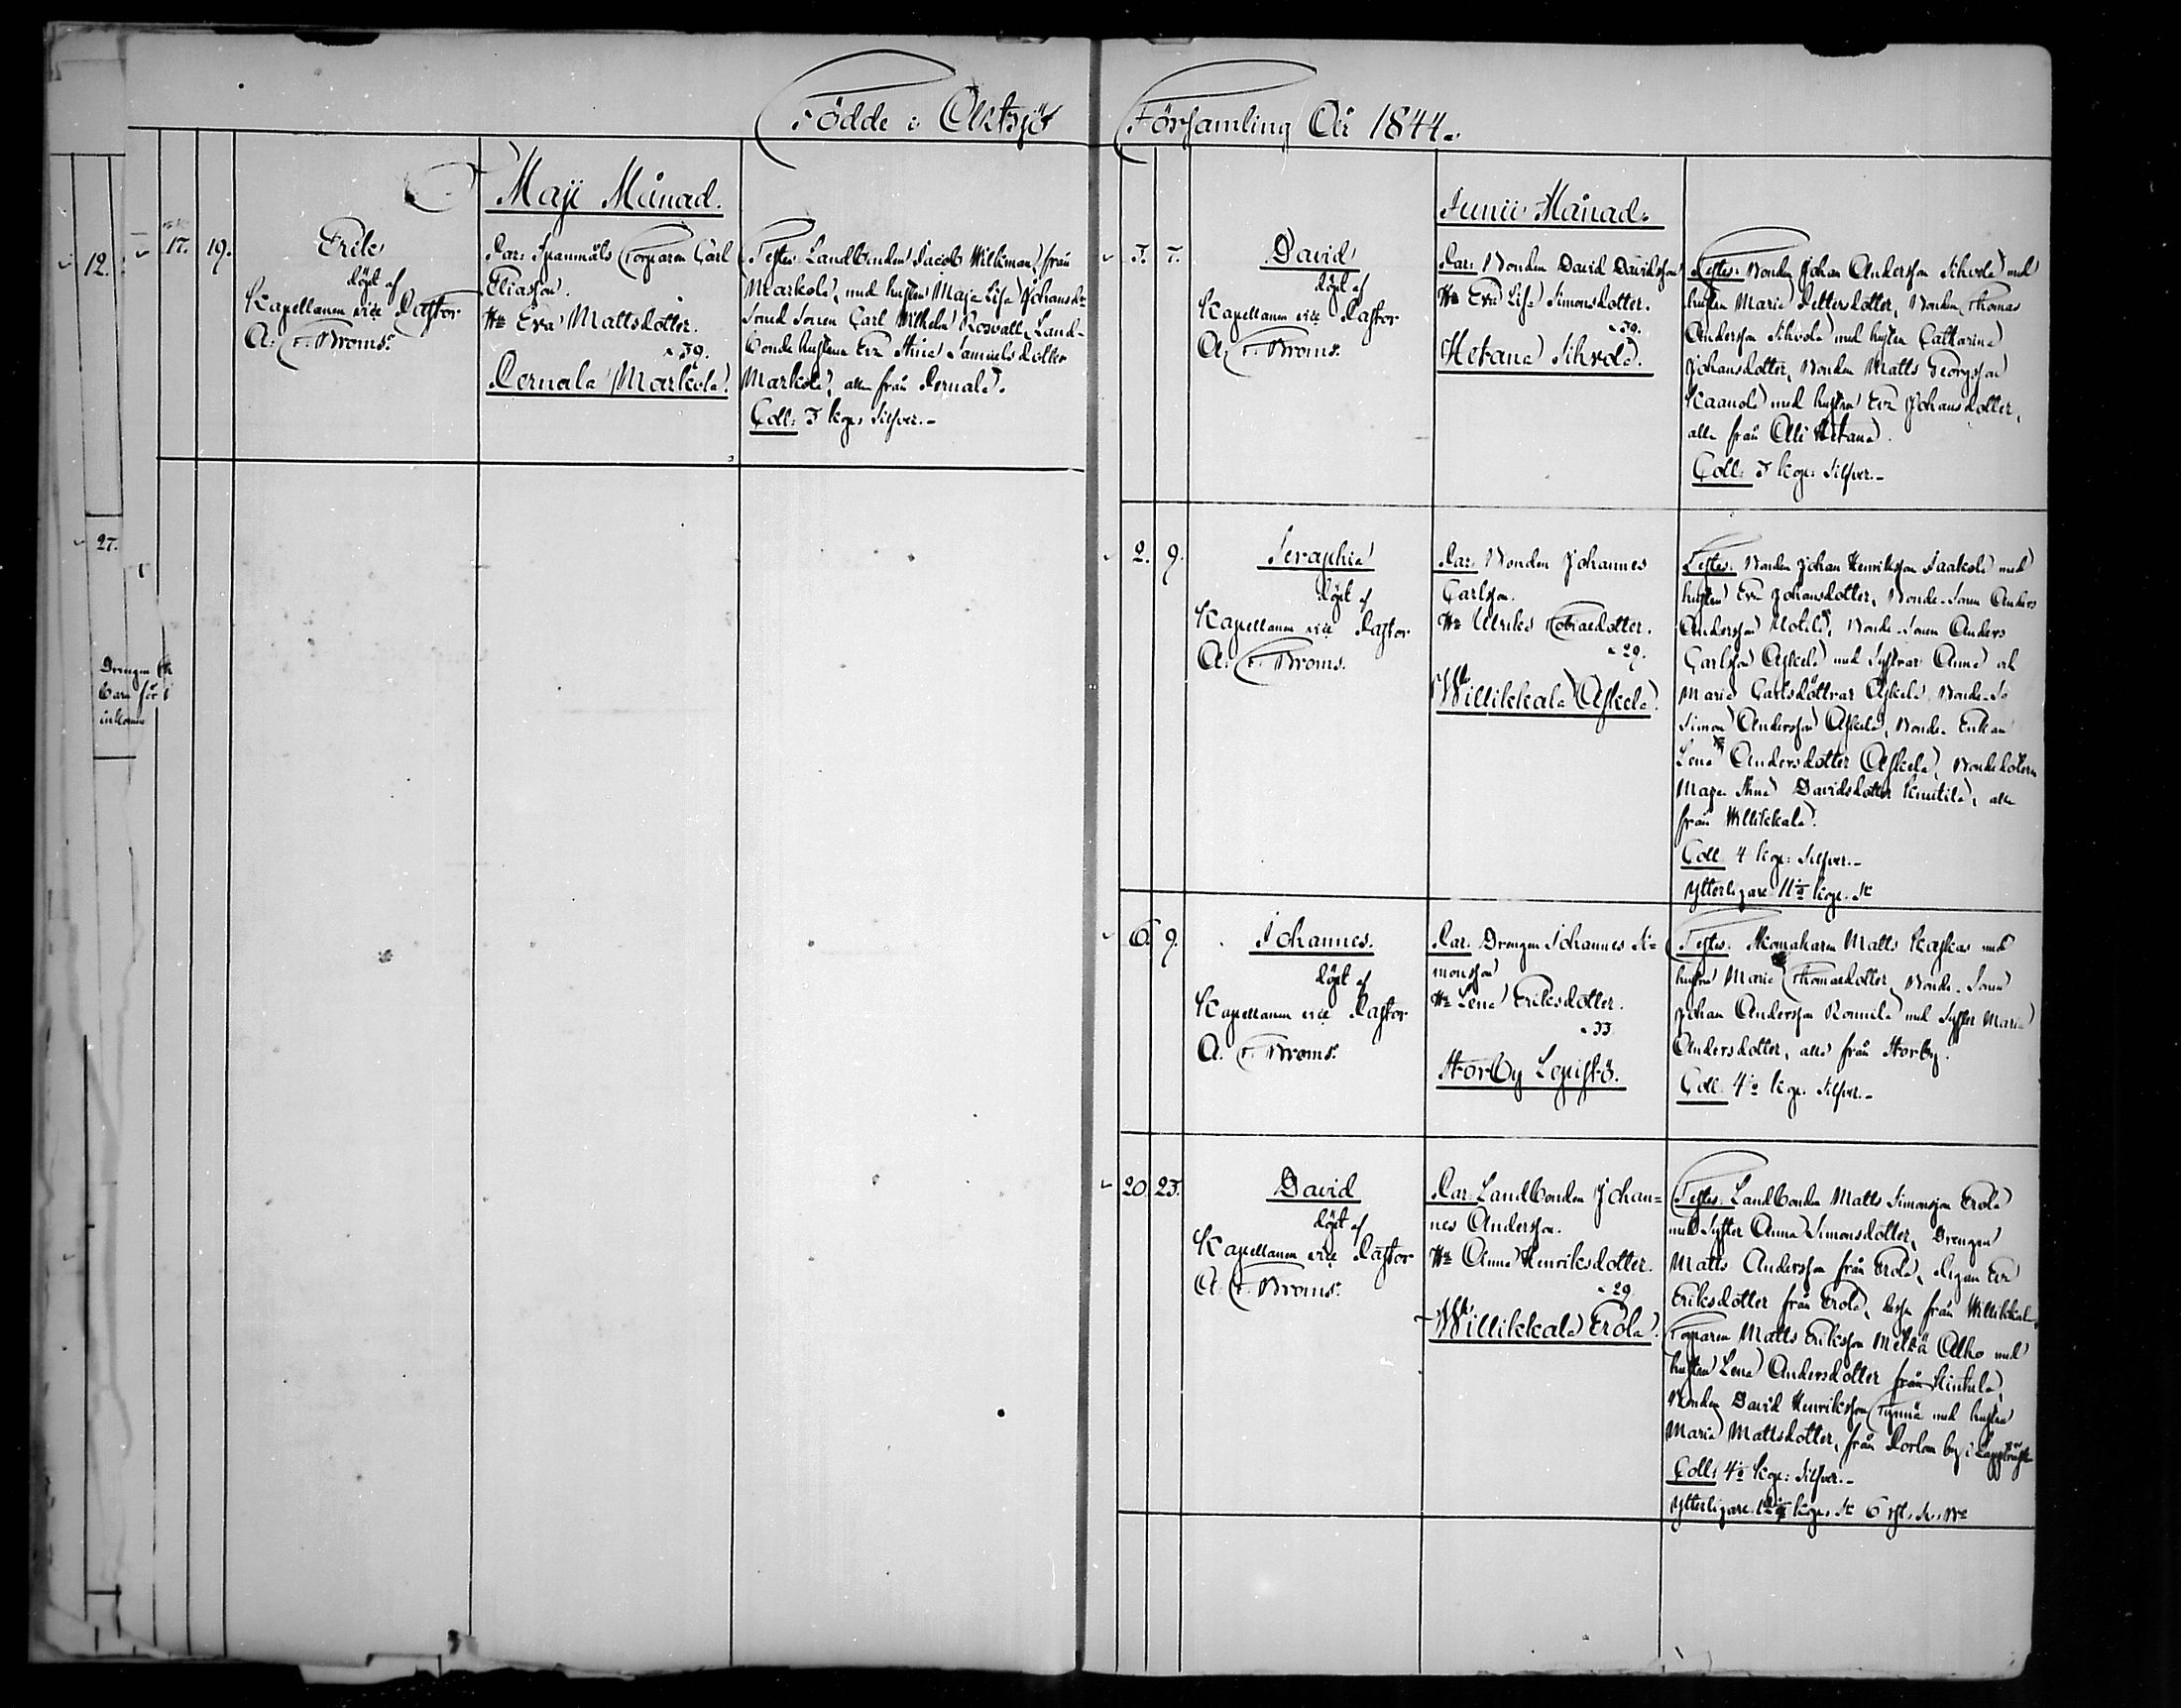 Födde i Artsjö Församling År 1844.
Maji Månad.
12.
27.
Drengen
barn för
inkomne
17. 19.
Erik
döpt af
Kapellanen vice Pastor
A. F. Broms.
Par. Spanmåls Torparen Carl
Eliasson.
Hu Eva Mattsdotter.
39.
Pernala Markola.
Testes. Landbonden Jacob Wilkman från
Markola, med hustru Maja Lisa Johansdr
Sonen Carl Wilhelm Rosvall, Land-
bonde hustrun Eva Stina Samuelsdotter
Markola, alla från Pernala.
Coll: 3 kop. Silfver.
Junii Månad.
3. 7.
David
döpt af
Kapellanen vice Pastor
A. F. Broms.
Par. Bonden David Davidsson
Hu Eva Lisa Simonsdotter.
39.
Hetana Sihvola.
Testes. Bonden Johan Andersson Sihvola med
hustru Maria Pettersdotter, Bonden Thomas
Andersson Sihvola med hustru Catharina
Johansdotter, Bonden Matts Georgsson
Kaanola med hustru Eva Johansdotter,
alla från Hetana.
Coll: 3 kop: Silfver.
2. 9.
Seraphia
döpt af
Kapellanen vice Pastor
A. F. Broms.
Par. Bonden Johannes
Carlsson.
Hu Ulrika Thomaedotter.
29.
Willikkala Askela.
Testes. Bonden Johan Henriksson Jaakola med
hustru Eva Johansdotter, Bonde-Sonen Anders
Andersson, Bonde-Sonen Anders
Carlsson Askela med Systrar Anna och
Maria Carlsdöttrar Askela Bonde-So
Simon Andersson Askela, Bonde-Enkan
Lena Andersdotter Askela, Bondedottern
Maja Stina Davidsdotter Knutila, alla
från Willikkala.
Coll. 4 kop: Silfver.
Ytterligare 11 kop. Sr
6. 9.
Johannes.
döpt af
Kapellanen vice Pastor
A. F. Broms.
Par. Drengen Johannes Si-
monsson
Hu Lena Eriksdotter.
33
Storby Lepistö.
Testes. Skomakaren Matts Kaskas med
hustru Maria Thomaedotter, Bonde-Sonen
Johan Andersson Ronnila med Syster Maria
Andersdotter, alla från Storby.
Coll. 4 kop. Silfver.
20. 23.
David
döpt af
Kapellanen vice Pastor
A. F. Broms.
Par. Landbonden Johan-
nes Andersson.
Hu Anna Henriksdotter.
29
Willikkala Erola.
Testes. Landbonden Matts Simonsson Erola
med Syster Anna Simonsdotter, Drengen
Matts Andersson från Erola, Pigan Eva
Eriksdotter från Erola, dessa från Willikkala,
Torparen Matts Eriksson Metsä Alho med
hustru Lena Andersdotter från Hinkula,
Bonden David Henriksson Tynnä med hustru
Maria Mattsdotter, från Porlom by i Lappträsk
Coll: 4 kop: Silfver.
Ytterligare kop. Sr 6 rst. Sr. Bco